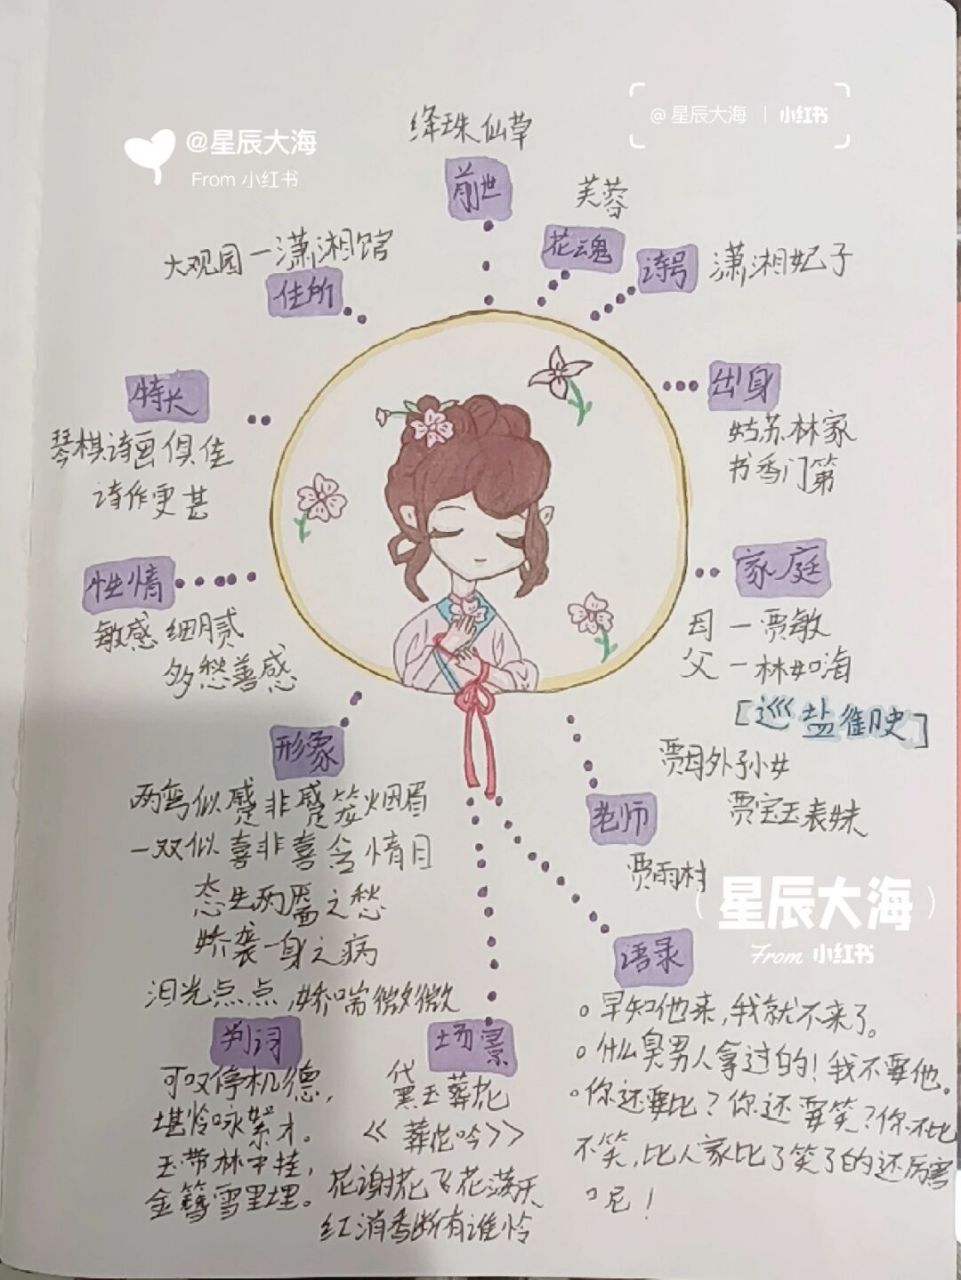 @星辰大海
From 小红书
@ 星辰大海 | 小红书
绛珠仙草
前世
芙蓉
花魂
诗号
潇湘妃子
大观园一潇湘馆
住所
特长
琴棋诗画俱佳
诗作更甚
出身
姑苏林家
书香门第
性情
敏感 细腻
多愁善感
家庭
母一贾敏
父一林如海
[巡盐御史]
贾母外孙女
贾宝玉表妹
老师
贾雨村
形象
两弯似蹙非蹙笼烟眉
一双似喜非喜含情目
态生两靥之愁
娇袭一身之病
泪光点点,娇喘微微
星辰大海
From 小红书
判词
可叹停机德,
堪怜咏絮才。
玉带林中挂,
金簪雪里埋。
场景
黛玉葬花
《葬花吟》
花谢花飞花满天
红消香断有谁怜
语录
早知他来,我就不来了。
什么臭男人拿过的!我不要他。
你还要比?你还要笑?你不比
不笑,比人家比了笑了的还厉害
呢!